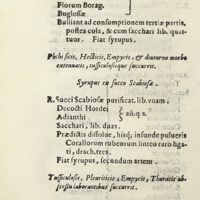 Florum Borag.
Buglossæ
Bulliant ad consumptionem tertiæ partis,
postea cola, & cum sacchari lib. quat-
tuor. Fiat syrupus.
Phthisicis, Hecticis, Empycis, & diuturno morbo
extenuatis, tussiculosisque succurrit.
Syrupus ex succo Scabiosæ.
R. Succi Scabiosæ purificat. lib. vnam,
Decocti Hordei
Adianthi
añ. q. s.
Sacchari, lib. duas.
Prædictis dissolue, hisq; infunde pulueris
Corallorum rubeorum linteo raro liga-
ti, drach. tres.
Fiat syrupus, secundum artem.
Tussiculosis, Pleuriticis, Empycis, Thoracis ab-
scessu laborantibus succurrit.